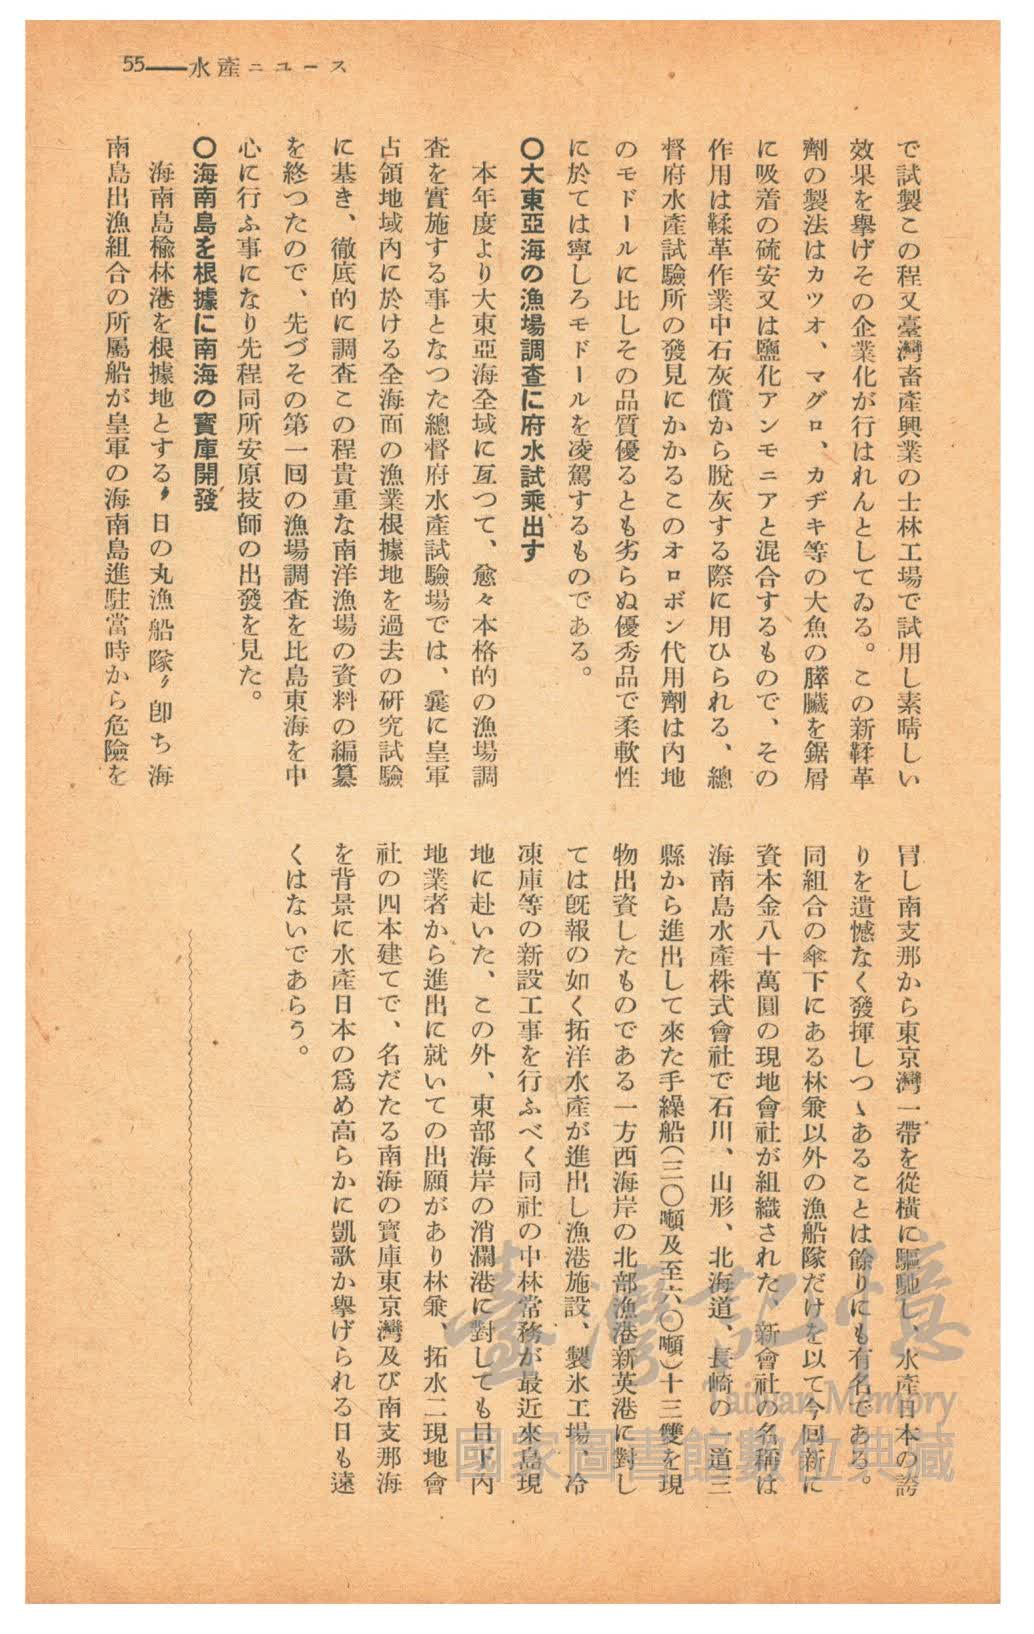 55——水產ニュース
で試製この程又臺灣畜產興業の士林工場で試用し素晴しい
效果を擧げその企業化が行はれんとしてゐる。この新鞣革
劑の製法はカツオ、マグロ、カヂキ等の大魚の膵臟を鋸屑
に吸着の硫安又は鹽化アンモニアと混合するもので、その
作用は鞣革作業中石灰償から脫灰する際に用ひられる、總
督府水產試驗所の發見にかかるこのオロボン代用劑は內地
のモドールに比しその品質優るとも劣らぬ優秀品で柔軟性
に於ては寧しろモドールを凌駕するものである。
〇大東亞海の漁場調查に府水試乘出す
本年度より大東亞海全域に亙つて、愈々本格的の漁場調
查を實施する事となつた總督府水產試驗場では、曩に皇軍
占領地域內に於ける全海面の漁業根據地を過去の硏究試驗
に基き、徹底的に調查この程貴重な南洋漁場の資料の編纂
を終つたので、先づその第一回の漁場調查を比島東海を中
心に行ふ事になり先程同所安原技師の出發を見た。
〇海南島を根據に南海の寶庫開發
海南島楡林港を根據地とする〃日の丸漁船隊〃卽ち海
南島出漁組合の所屬船が皇軍の海南島進駐當時から危險を
冐し南支那から東京灣一帶を從橫に驅馳し、水產日本の誇
りを遺憾なく發揮しつゝあることは餘りにも有名である。
同組合の傘下にある林兼以外の漁船隊だけを以て今回新に
資本金八十萬圓の現地會社が組織された、新會社の名稱は
海南島水產株式會社で石川、山形、北海道、長崎の一道三
縣から進出して來た手繰船(三〇噸及至六〇噸)十三雙を現
物出資したものである一方西海岸の北部漁港新英港に對し
ては旣報の如く拓洋水產が進出し漁港施設、製氷工場、冷
凍庫等の新設工事を行ふべく同社の中林常務が最近來島現
地に赴いた、この外、東部海岸の消瀾港に對しても目下內
地業者から進出に就いての出願があり林兼、拓水二現地會
社の四本建てで、名だたる南海の寶庫東京灣及び南支那海
を背景に水產日本の爲め高らかに凱歌か擧げられる日も遠
くはないであらう。
臺灣記憶
Taiwan Memory
國家圖書館數位典藏